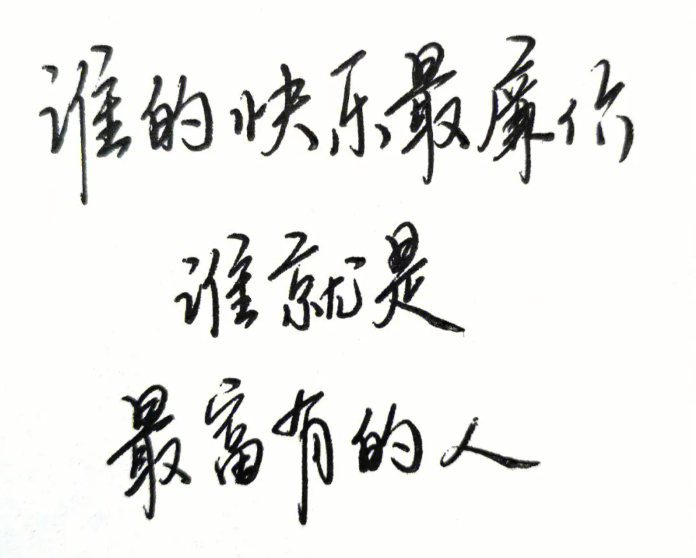 谁的快乐最廉价
谁就是
最富有的人